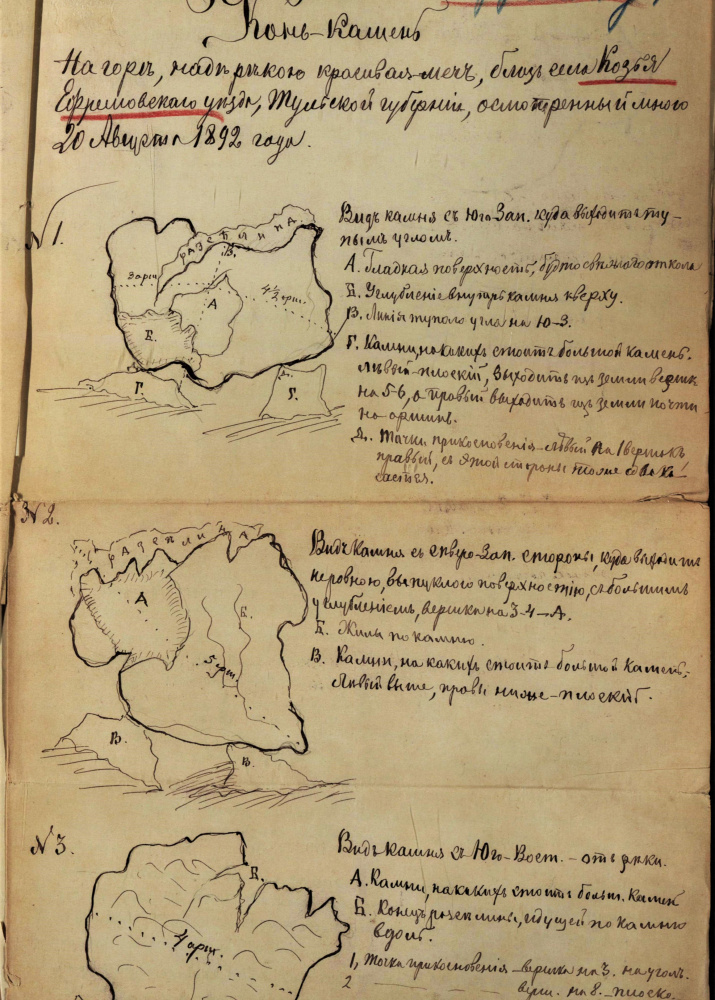 Конь-Камень
На горѣ, надъ рѣкою красивая-мечъ, близь села Козьяго
Ефремовскаго уѣзда, Тульской губерніи, осмотренный мною
20 Августа 1892 года.
№ 1.
РАЗСѢЛИНА.
В.
3 арш
А
4 ½ арш.
Б.
Г.
Д.
Г.
Видъ камня съ Юго-Зап. куда выходитъ ту-
пымъ угломъ.
А. Гладкая поверхность, будто свѣжаго откола
Б. Углубленіе внутрь камня кверху.
В. Линія тупого угла на Ю-З.
Г. Камни, на какихъ стоитъ большой камень.
Лѣвый-плоскій, выходитъ изъ земли вершк.
на 5-6, а правый выходитъ изъ земли почти
на аршинъ.
Д. Точки прикосновенія-лѣвый на 1 вершокъ
правый, съ этой стороны тоже
№ 2.
РАЗСѢЛИНА
А
Б.
5 арш.
В.
В.
Видъ камня съ Сѣверо-Зап. стороны, куда выходитъ
неровною, выпуклою поверхностію, съ большимъ
углубленіемъ, вершка на 3-4-А.
Б. Жилы по камню.
В. Камни, на какихъ стоитъ большой камень,
лѣвый выше, правый ниже-плоскій.
№ 3.
Б.
4 арш.
Видъ камня съ Юго-Вост. - отъ рѣки.
А. Камни, на какихъ стоитъ больш. камень
Б. Конецъ разселины, идущей по камню
вдоль.
1, Точка прикосновенія вершка на 3. на уголъ.
2 верш. на 8. плоско.